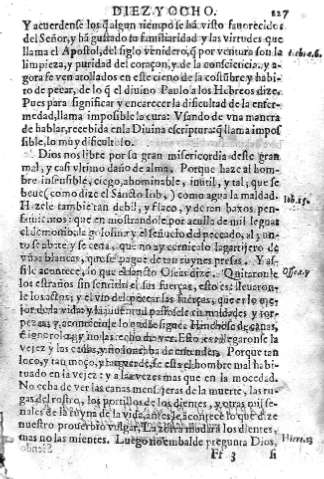 DIEZ Y OCHO. 227
Y acuerdense los q̃ algun tiempo se ha visto fauorecidos
del Señor, y hã gustado su familiaridad y las virtudes que
llama el Apostol, del siglo venidero, q̃ por ventura son la
limpieza, y puridad del coraçon, y de la consciencia, y a-
gora se ven atollados en este cieno de la costũbre, y habi-
to de pecar, de lo q̃ el diuino Paulo a los Hebreos dize.
Pues para significar y encarecer la dificultad de la enfer-
medad, llama impossible la cura: Vsando de vna manera
de hablar, recebida en la Diuina escriptura, q̃ llama impos
sible, lo muy dificultoso.
Dios nos libre por su gran misericordia deste gran
mal, y casi vltimo daño de alma. Porque haze al hom-
bre insensible, ciego, abominable, inutil, y tal, que se
beue (como dize el Sancto Iob,) como agua la maldad.
Iob.15.
Hazele tambien tan debil, y flaco, y de tan baxos pen-
samientos: que en mostrandole por acullà de mil leguas
el demonio la golosina y el señuelo del peccado, al punto
se abate y se ceua, que no ay cernicalo lagartijero de
vñas blancas, que se pague de tan ruynes presas. Y as-
si le acontece, lo que el Sancto Oseas dize. Quitaronle
Osee.7
los estraños sin sentirlo el sus fuerças, esto es: lleuaron-
le los
y el vso del pecar las fuerças, que er lo me-
jor de la vida y la juuentud
maldades y tor-
pezas y aconteciole lo que se sigue. Hinchose de canas,
é ignorolo, y no las echo de ver. Esto es: llegaronse la
vejez y las canas, y no lo ha de entender. Porque tan
loco, y tan moço, y tan verde, se està el hombre mal habi-
tuado en la vejez: y a las vezes mas que en la mocedad.
No echa de ver las canas mensajeras de la muerte, las ru-
gas del rostro, los portillos de los dientes, y otras mil se-
ñales de la ruyna de la vida, antes le acontece lo que dize
nuestro prouerbio vulgar, La zorra mudarà los dientes,
mas no las mientes. Luego no embalde pregunta Dios,
Hiere.13
Ff 3 si